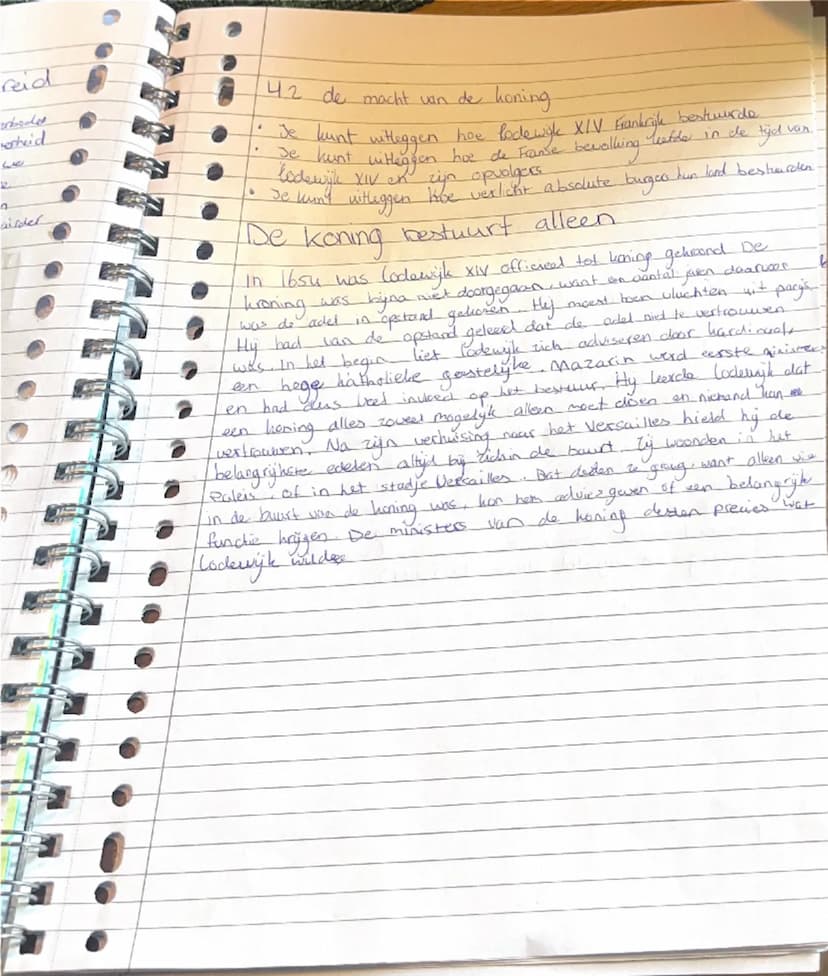 reid
erheid
4.2 de macht van de koning
• Je kunt uitleggen hoe Lodewijk XIV Frankrijk bestuurde
• Je kunt uitleggen hoe de Franse bevolking leefde in de tijd van
Lodewijk XIV en zijn opvolgers
• Je kunt uitleggen hoe verlicht absolute burgco hun land bestuurden
De koning bestuurt alleen
In 1654 was Lodewijk XIV officieel tot koning gekroond De
kroning was bijna niet doorgegaan, want een aantal jaren daarvoor
was de adel in opstand gekomen. Hij moest toen vluchten uit parijs
Hij had van de opstand geleerd dat de adel niet te vertrouwen
was. In het begin liet Lodewijk zich adviseren door kardinaal,
een hoge katholieke geestelijke. Mazarin werd eerste minister
en had dus veel invloed op het bestuur. Hij leerde Lodewijk dat
een koning alles zoveel mogelijk alleen moet doen en niemand kan
vertrouwen. Na zijn verhuising naar het Versailles hield hij de
belangrijkste edelen altijd bij zich in de buurt. Zij woonden in het
Paleis, of in het stadje Versailles. Dat deden ze graag, want alleen wie
in de buurt van de koning was, kon hem advies geven of een belangrijk
functie krijgen. De ministers van de koning deden precies wat
Lodewijk wilde